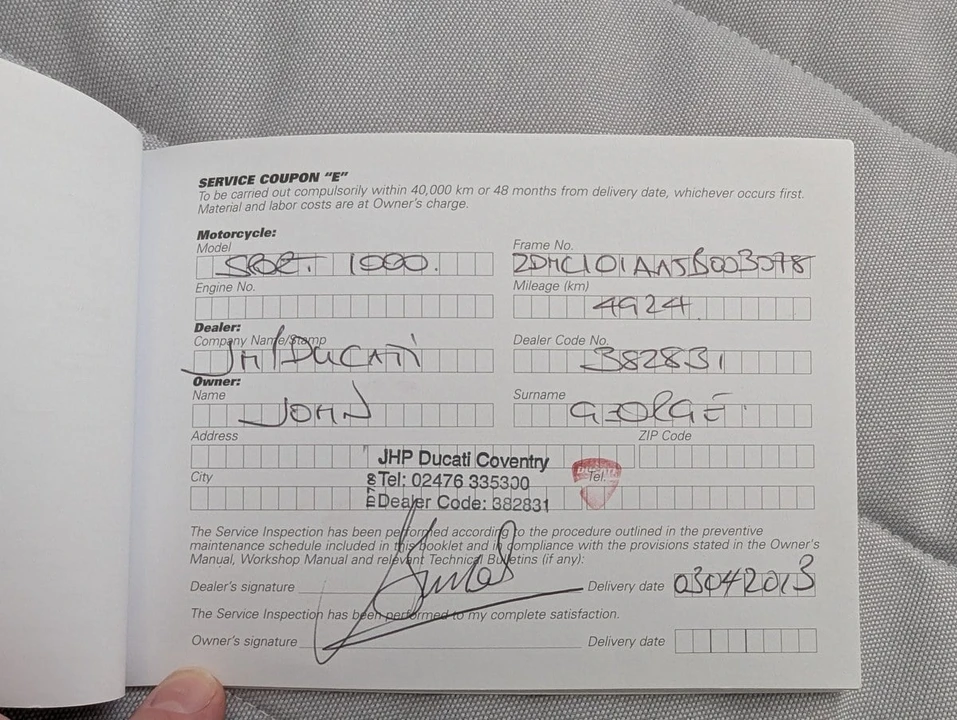 SERVICE COUPON "E"
To be carried out compulsorily within 40,000 km or 48 months from delivery date, whichever occurs first.
Material and labor costs are at Owner's charge.
Motorcycle:
Model Frame No.
SPORT 1000. ZDMC101AA5B003078
Engine No. Mileage (km)
4924
Dealer:
Company Name/Stamp Dealer Code No.
JHP DUCATI 382831
Owner:
Name Surname
JOHN GEORGE
Address ZIP Code
JHP Ducati Coventry
City Tel: 02476 335300 DUCATI Tel.
Dealer Code: 382831
The Service Inspection has been performed according to the procedure outlined in the preventive
maintenance schedule included in this booklet and in compliance with the provisions stated in the Owner's
Manual, Workshop Manual and relevant Technical Bulletins (if any):
Dealer's signature Delivery date 03042013
The Service Inspection has been performed to my complete satisfaction.
Owner's signature Delivery date